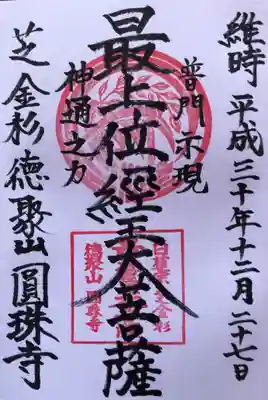 維時 平成三十年十二月二十七日
普門示現
最上位經王大菩薩
神通之力
芝金杉徳聚山圓珠寺